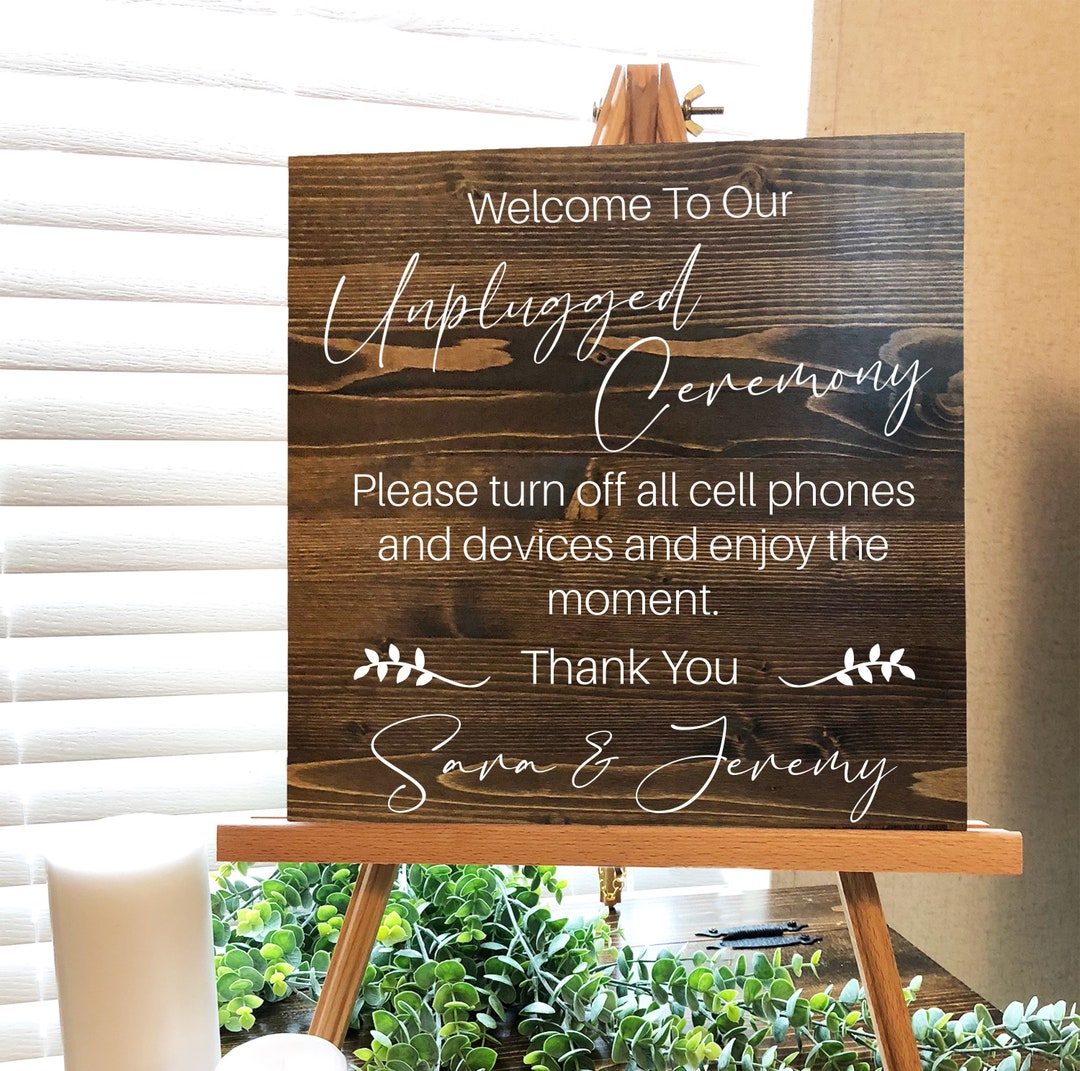 Welcome To Our
Unplugged
Ceremony
Please turn off all cell phones
and devices and enjoy the
moment.
Thank You
Sara & Jeremy